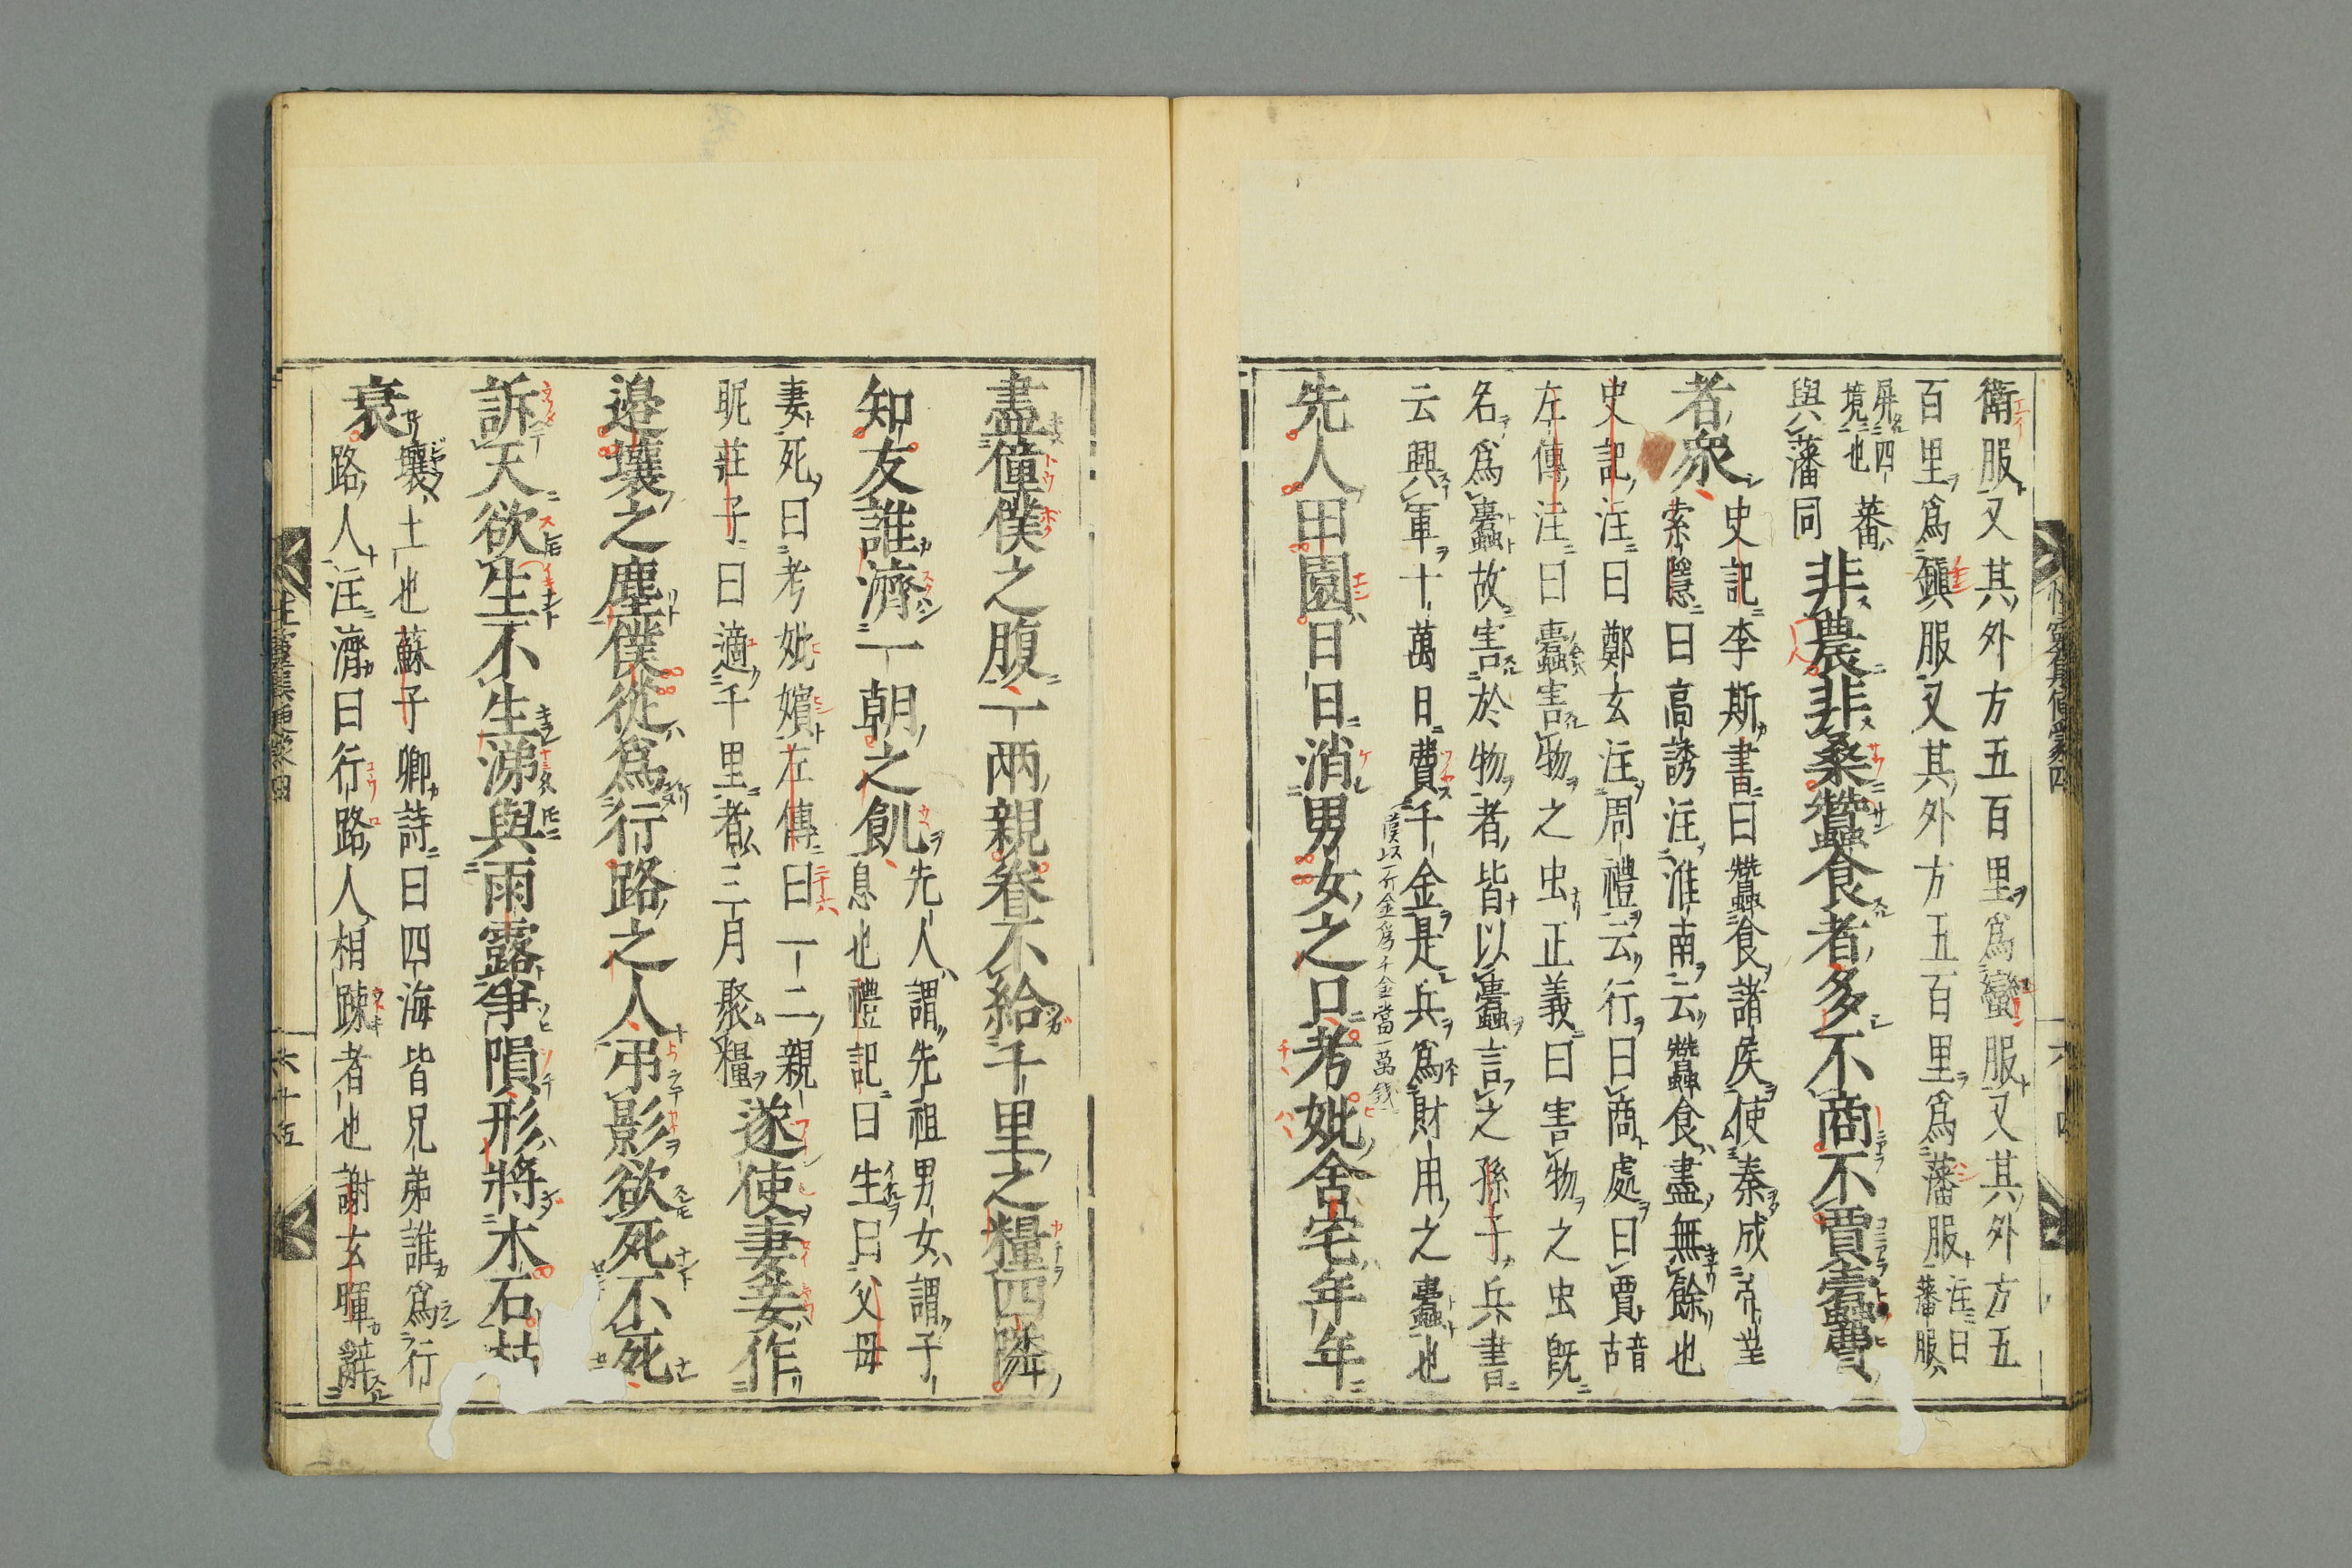 衛服又其外方五百里爲蠻服又其外方五
百里爲鎭服又其外方五百里爲藩服注曰藩服
屏四境也蕃
與藩同非農非桑蠶食者多不商不賈蠹費
者衆史記李斯書曰蠶食諸侯使秦成帝業
索隱曰高誘注淮南云蠶食盡無餘也
史記注曰鄭玄注周禮云行曰商處曰賈古音
左傳注曰蠹害物之虫正義曰害物之虫既
名爲蠹故害於物者皆以蠹言之孫子兵書
云興軍十萬日費千金是兵爲財用之蠹也
漢以一斤金爲千金當一萬錢
先人田園日日消男女之口考妣舍宅年年
盡僮僕之腹一兩親眷不給千里之糧四隣
知友誰濟一朝之飢先人謂先祖男女謂子
息也禮記曰生曰父母
妻死曰考妣嬪左傳曰一二親
昵莊子曰適千里者三月聚糧遂使妻妾作
邊壤之塵僕從爲行路之人弔影欲死不死
訴天欲生不生涕與雨露爭隕形將木石
衰壤土也蘇子卿詩曰四海皆兄弟誰爲行
路人注濟曰行路人相踈者也謝玄暉辭
六十五